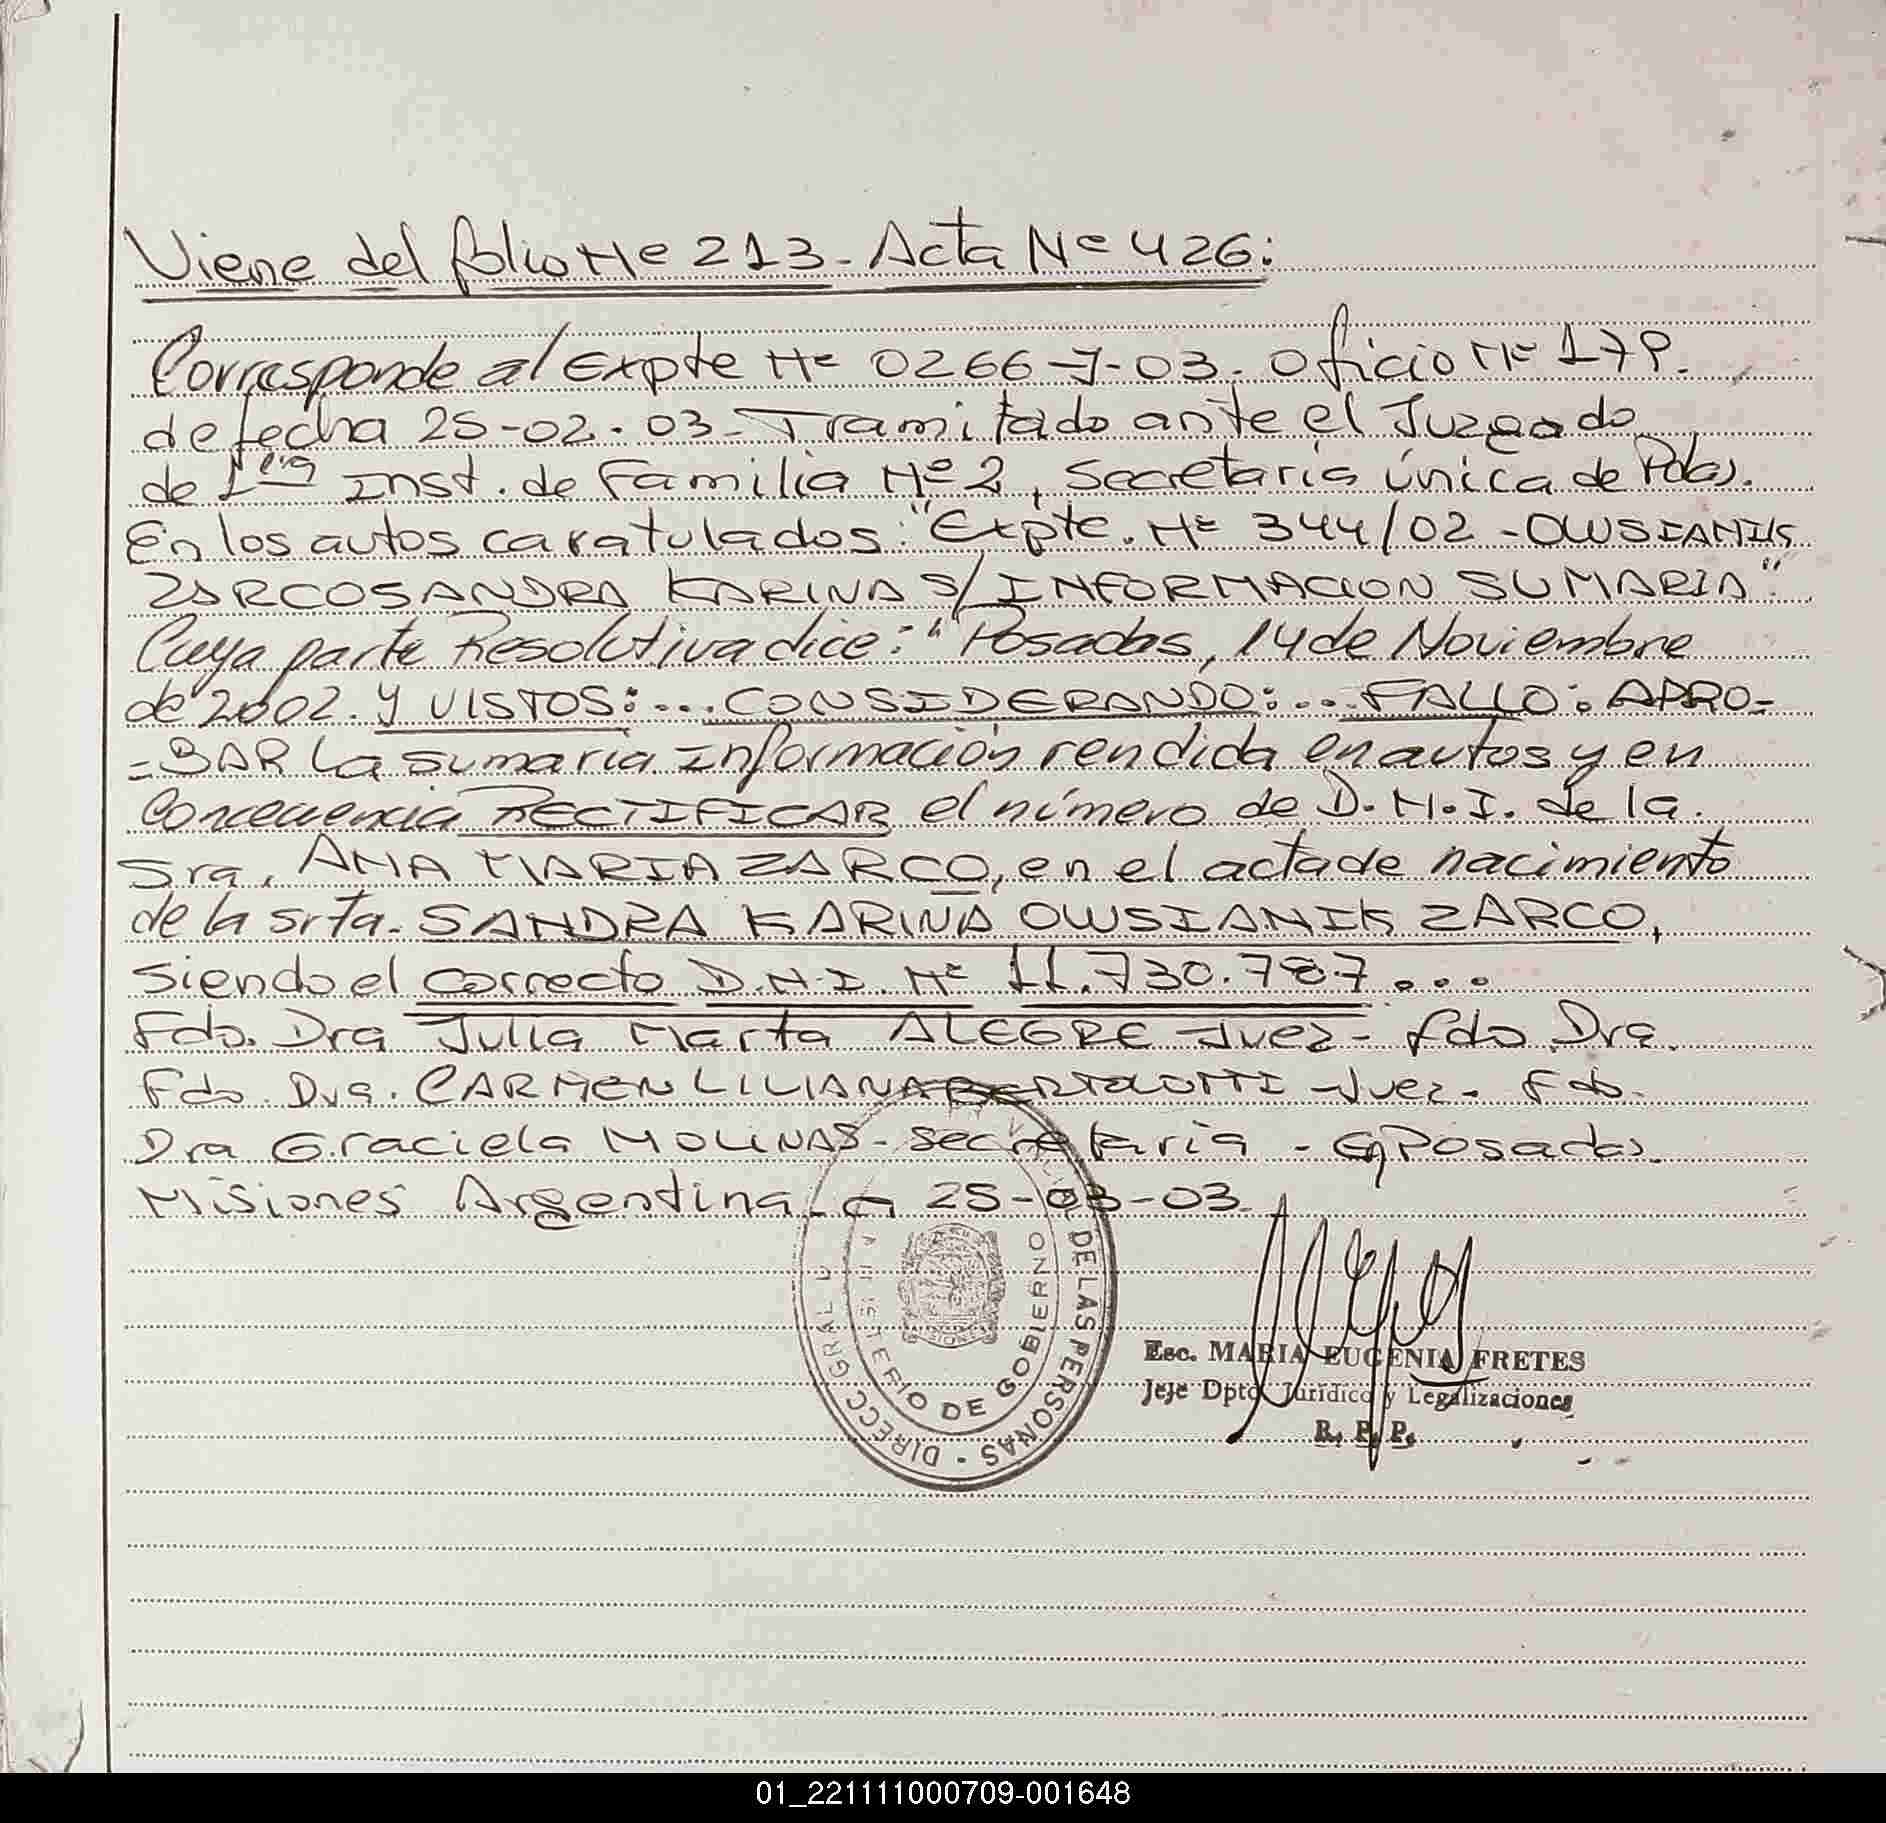 Viene del folio Nº 213 - Acta Nº 426:
Corresponde al Expte Nº 0266-J-03. Oficio Nº 179.
de fecha 25-02-03- Tramitado ante el Juzgado
de 1era Inst. de Familia Nº 2, Secretaría única de Pdas.
En los autos caratulados: "Expte. Nº 344/02 - OWSIANIK
ZARCO SANDRA KARINA S/ INFORMACION SUMARIA"
Cuya parte Resolutiva dice: "Posadas, 14 de Noviembre
de 2002. Y VISTOS: ... CONSIDERANDO: ... FALLO: APRO-
-BAR la sumaria información rendida en autos y en
concecuencia RECTIFICAR el número de D.N.I. de la
Sra. ANA MARIA ZARCO, en el acta de nacimiento
de la srta. SANDRA KARINA OWSIANIK ZARCO,
siendo el correcto D.N.I. Nº 11.730.787...
Fdo. Dra Julia Marta ALEGRE Juez - fdo Dra.
Fdo. Dra. CARMEN LILIANA BERTOLOTTI - Juez - Fdo.
Dra Graciela MOLINAS - Secretaria - Posadas.
Misiones Argentina - a 25-03-03.
DIRECC GRAL DE LAS PERSONAS
MINISTERIO DE GOBIERNO
MISIONES
Esc. MARIA EUGENIA FRETES
Jefe Dpto. Jurídico y Legalizaciones
R. P. P.
01_221111000709-001648